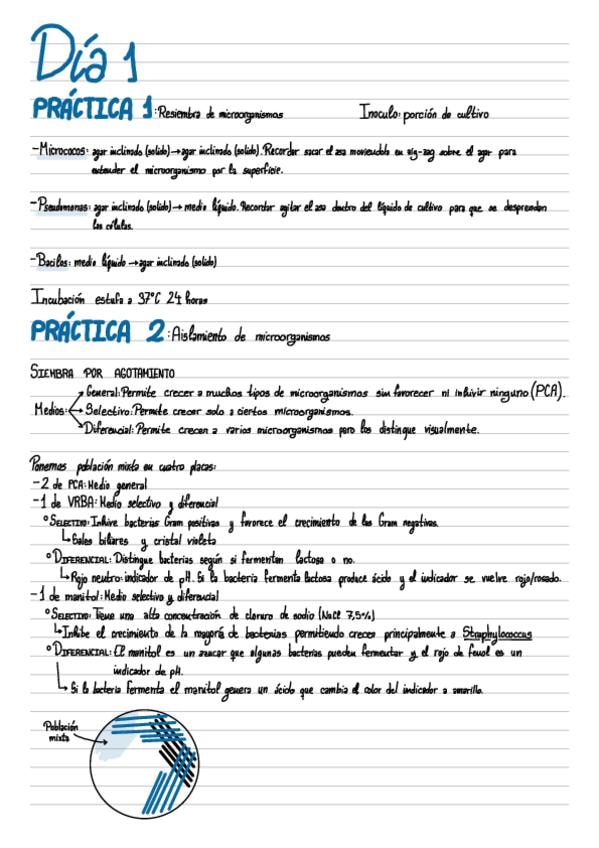 Día 1
PRÁCTICA 1: Resiembra de microorganismos Inoculo: porción de cultivo
-Micrococos: agar inclinado (solido)→agar inclinado (solido). Recordar sacar el asa moviendola en zig-zag sobre el agar para
extender el microorganismo por la superficie.
-Pseudomonas: agar inclinado (solido)→ medio líquido. Recordar agitar el asa dentro del líquido de cultivo para que se desprendan
las células.
-Bacilos: medio líquido →agar inclinado (solido)
Incubación estufa a 37ºC 24 horas
PRÁCTICA 2: Aislamiento de microorganismos
SIEMBRA POR AGOTAMIENTO
General: Permite crecer a muchos tipos de microorganismos sin favorecer ni inhivir ninguno (PCA).
Medios: Selectivo: Permite crecer solo a ciertos microorganismos.
Diferencial: Permite crecer a varios microorganismos pero los distingue visualmente.
Ponemos población mixta en cuatro placas:
-2 de PCA: Medio general
-1 de VRBA: Medio selectivo y diferencial
° SELECTIVO: Inhive bacterias Gram positivas y favorece el crecimiento de las Gram negativas.
↳ Sales biliares y cristal violeta
° DIFERENCIAL: Distingue bacterias según si fermentan lactosa o no.
↳ Rojo neutro: indicador de pH. Si la bacteria fermenta lactosa produce ácido y el indicador se vuelve rojo/rosado.
-1 de manitol: Medio selectivo y diferencial
° SELECTIVO: Tiene una alta concentración de cloruro de sodio (NaCl 7,5%)
↳ Inhibe el crecimiento de la mayoría de bacterias permitiendo crecer principalmente a Staphylococcus
° DIFERENCIAL: El manitol es un azucar que algunas bacterias pueden fermentar y el rojo de fenol es un
indicador de pH.
↳ Si la bacteria fermenta el manitol genera un ácido que cambia el color del indicador a amarillo.
Población
mixta